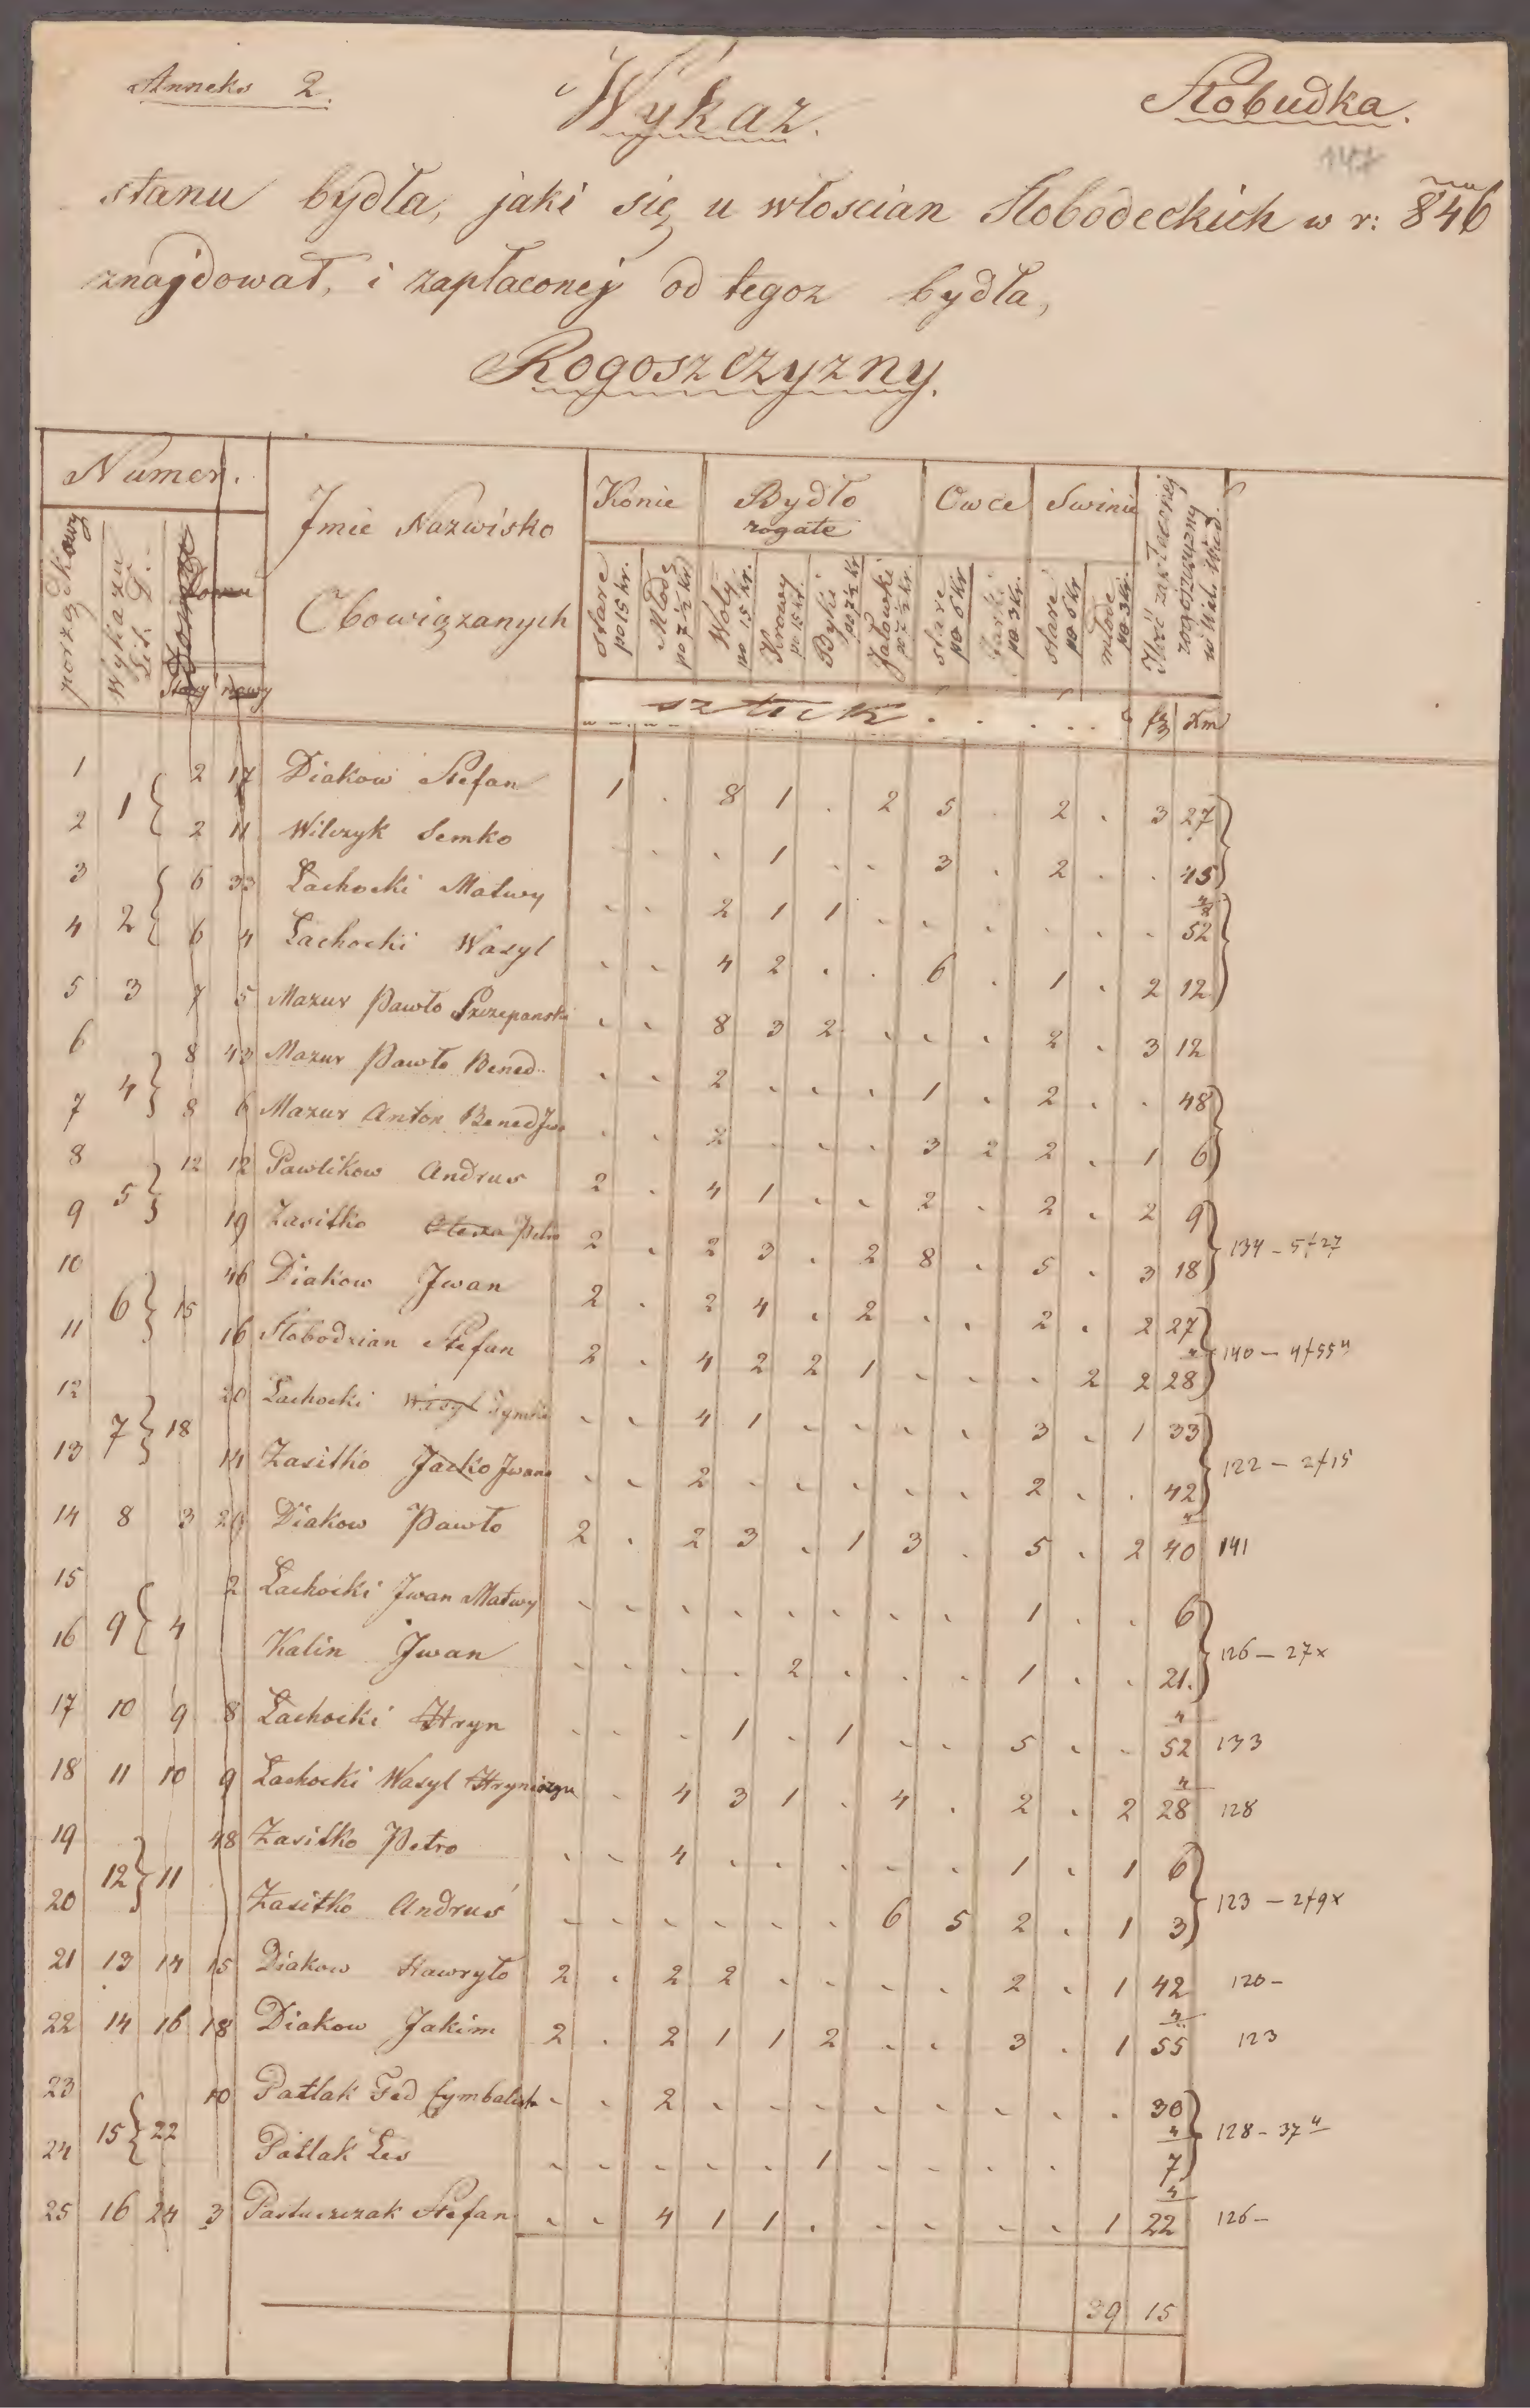 Anneks 2.
Wykaz.
Słobudka.
147
stanu bydła, jaki się u włoscian Słobodeckich w r: 846
znajdował, i zapłaconej od tegoz bydła,
Rogoszczyzny.
Numer. Jmie Nazwisko Obowiązanych Konie Bydło rogate Owce Swinie
porządkowy Wykazu Lit. D. Domu stary nowy
stare po 15 kr. Młode po 7½ kr Woły po 15 kr. Krowy po 15 kr. Byki po 7½ kr Jałowki po 7½ kr. stare po 6 kr Jarki po 3 kr. stare po 6 kr młode po 3 kr. Ilość zapłaconej rogoszczyzny w Wal. Wied.
sztuk . . . . . fr xm
1 1 { 2 17 Diakow Stefan 1 . 8 1 . 2 5 . 2 . 3 27
2 2 11 Wilczyk Semko . . . 1 . . 3 . 2 . . 45
3 2 { 6 33 Łachocki Matwy . . 2 1 1 . . . . . . 52 4/8
4 6 4 Łachocki Wasyl . . 4 2 . . 6 . 1 . 2 12
5 3 7 5 Mazur Pawło Szczepanski . . 8 3 2 . . . 2 . 3 12
6 4 } 8 43 Mazur Pawło Bened . . 2 . . . 1 . 2 . . 48
7 8 6 Mazur Anton Bened Jwa . . 2 . . . 3 2 2 . 1 6
8 5 } 12 12 Pawlikow Andrus 2 . 4 1 . . 2 . 2 . 2 9
9 19 Zasitko Petro 2 . 2 3 . 2 8 . 5 . 3 18 } 134 - 5f27
10 6 } 15 46 Diakow Jwan 2 . 2 4 . 2 . . 2 . 2 27
11 16 Słobodzian Stefan 2 . 4 2 2 1 . . . 2 2 28 4 } 140 - 4f55 4
12 7 } 18 20 Łachocki Wasyl . . 4 1 . . . . 3 . 1 33
13 14 Zasitko Jacko Jwana . . 2 . . . . . 2 . . 42 } 122 - 2f15
14 8 3 29 Diakow Pawło 2 . 2 3 . 1 3 . 5 . 2 40 4 141
15 9 { 4 2 Łachocki Jwan Matwy . . . . . . . . 1 . . 6
16 Kalin Jwan . . . . 2 . . . 1 . . 21. } 126 - 27x
17 10 9 8 Łachocki Hryn . . . 1 . 1 . . 5 . . 52 4 133
18 11 10 9 Łachocki Wasyl Hryniszyn . 4 3 1 . 4 . 2 . 2 28 4 128
19 12 } 11 48 Zasitko Petro . . 4 . . . . . 1 . 1 6
20 Zasitko Andrus . . . . . . 6 5 2 . 1 3 } 123 - 2f9x
21 13 14 15 Diakow Hawryło 2 . 2 2 . . . . 2 . 1 42 120 -
22 14 16 18 Diakow Jakim 2 . 2 1 1 2 . . 3 . 1 55 4 123
23 15 { 22 10 Patlak Fed Cymbalista . . 2 . . . . . . . . 30
24 Patlak Les . . . . . 1 . . . . 7 4 } 128 - 37 4
25 16 24 3 Pastuszczak Stefan . . 4 1 1 . . . . . 1 22 4 126 -
39 15